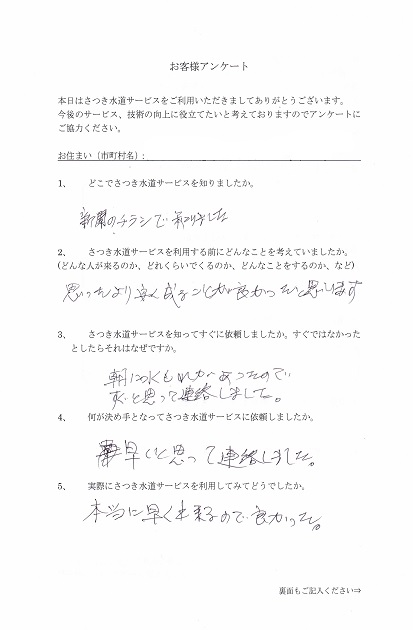 お客様アンケート
本日はさつき水道サービスをご利用いただきましてありがとうございます。
今後のサービス、技術の向上に役立てたいと考えておりますのでアンケートに
ご協力ください。
お住まい（市町村名）：
1、 どこでさつき水道サービスを知りましたか。
新聞のチラシで知りました
2、 さつき水道サービスを利用する前にどんなことを考えていましたか。
(どんな人が来るのか、どれくらいでくるのか、どんなことをするのか、など)
思ったより 良かったと思います
3、 さつき水道サービスを知ってすぐに依頼しましたか。すぐではなかった
としたらそれはなぜですか。
朝に水もれがあったので
すぐと思って連絡しました。
4、 何が決め手となってさつき水道サービスに依頼しましたか。
早いと思って連絡しました。
5、 実際にさつき水道サービスを利用してみてどうでしたか。
本当に早く来るので良かった。
裏面もご記入ください⇒